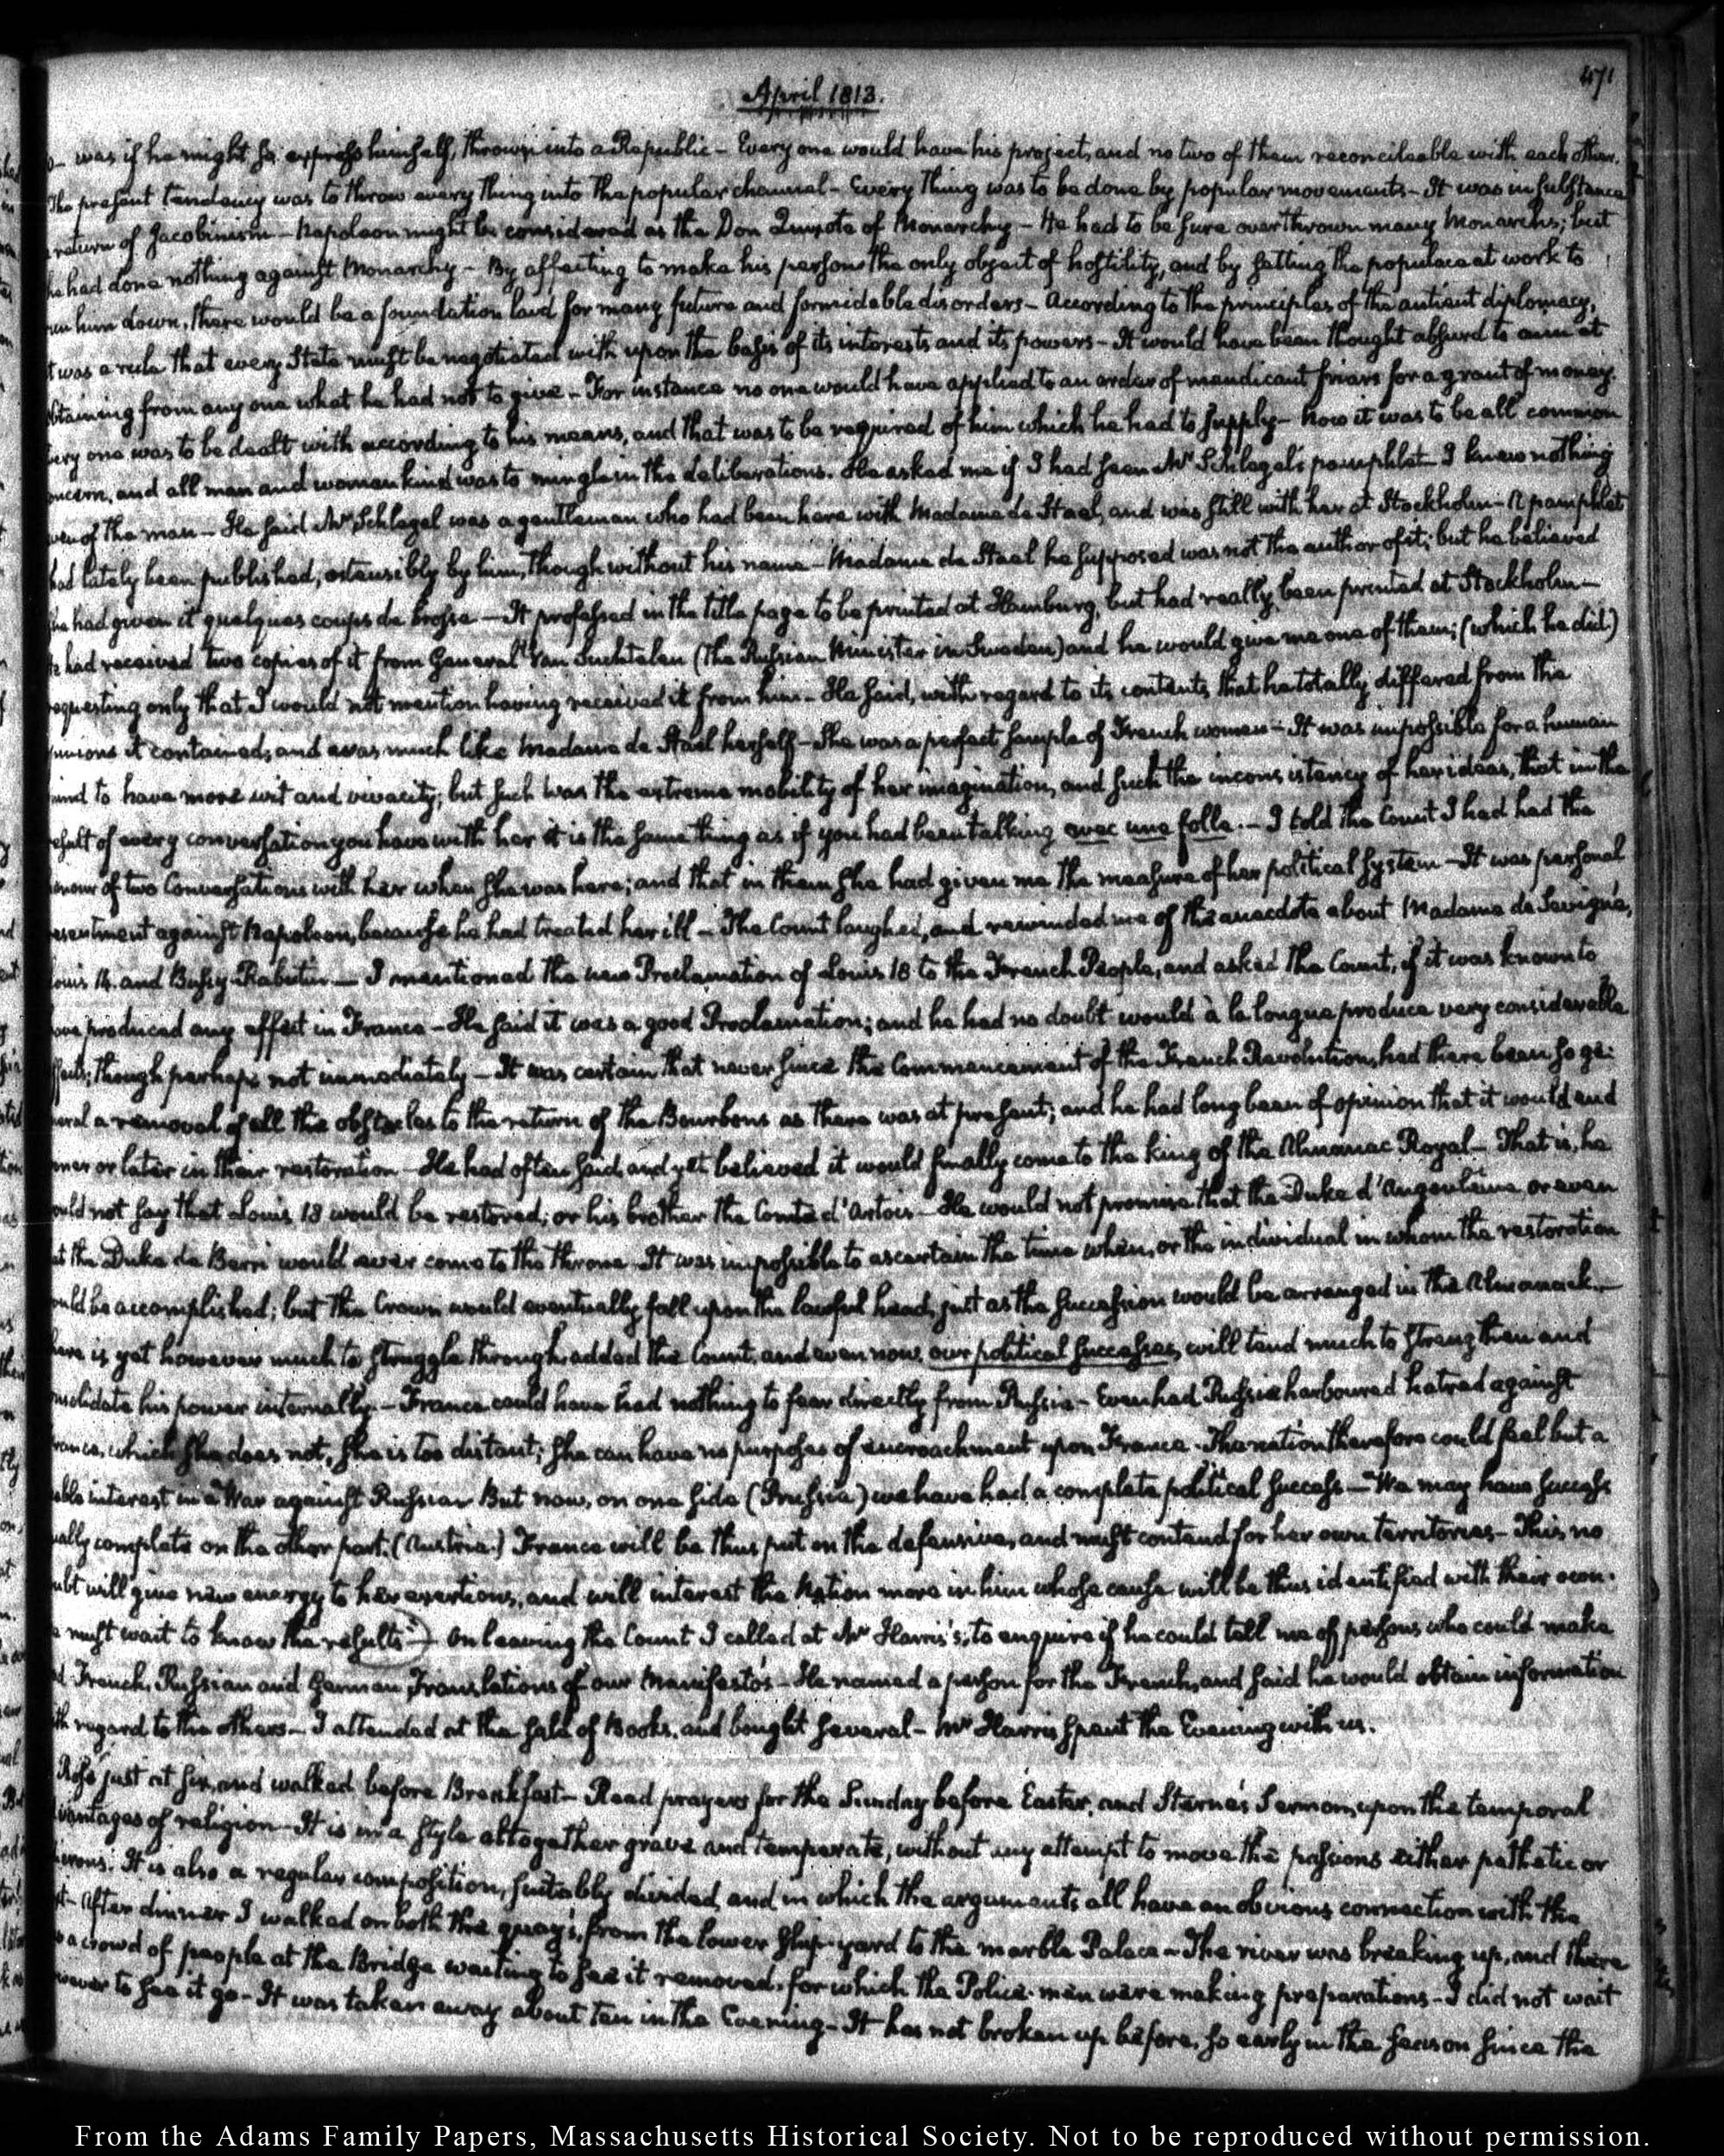 April 1813.
471
was if he might so express himself, thrown into a Republic — Every one would have his project, and no two of them reconcileable with each other.
The present tendency was to throw every thing into the popular channel — Every thing was to be done by popular movements — It was in substance
return of Jacobinism — Napoleon might be considered as the Don Quixote of Monarchy — He had to be sure overthrown many Monarchs; but
he had done nothing against Monarchy — By affecting to make his person the only object of hostility, and by setting the populace at work to
run him down, there would be a foundation laid for many future and formidable disorders — According to the principles of the antient diplomacy,
it was a rule that every State must be negotiated with upon the basis of its interests and its powers — It would have been thought absurd to aim at
obtaining from any one what he had not to give — For instance no one would have applied to an order of mendicant friars for a grant of money.
every one was to be dealt with according to his means, and that was to be required of him which he had to supply — Now it was to be all common
concern, and all man and woman kind was to mingle in the deliberations. He asked me if I had seen Mr. Schlegel's pamphlet I knew nothing
even of the man — He said Mr. Schlegel was a gentleman who had been here with Madame de Stael, and was still with her at Stockholm — A pamphlet
had lately been published, ostensibly by him, though without his name — Madame de Stael he supposed was not the author of it; but he believed
she had given it quelques coups de brosse — It professed in the title page to be printed at Hamburg, but had really been printed at Stockholm —
he had received two copies of it from General Van Suchtelen (the Russian Minister in Sweden) and he would give me one of them; (which he did)
requesting only that I would not mention having received it from him — He said, with regard to its contents, that he totally differed from the
opinions it contained; and was much like Madame de Stael herself — She was a perfect sample of French women — It was impossible for a human
mind to have more wit and vivacity; but such was the extreme mobility of her imagination, and such the inconsistency of her ideas, that in the
result of every conversation you have with her it is the same thing as if you had been talking avec une folle. — I told the Count I had had the
honour of two Conversations with her when she was here; and that in them she had given me the measure of her political system — It was personal
resentment against Napoleon, because he had treated her ill — The Count laughed, and reminded me of the anecdote about Madame de Sevigné,
Louis 14. and Bussy-Rabutin — I mentioned the new Proclamation of Louis 18 to the French People, and asked the Count, if it was known to
have produced any effect in France — He said it was a good Proclamation; and he had no doubt would à la longue produce very considerable
effects; though perhaps not immediately — It was certain that never since the Commencement of the French Revolution, had there been so ge:
neral a removal of all the obstacles to the return of the Bourbons as there was at present; and he had long been of opinion that it would end
sooner or later in their restoration — He had often said, and yet believed it would finally come to the king of the Almanac Royal — That is, he
would not say that Louis 18 would be restored; or his brother the Comte d'Artois — He would not promise that the Duke d'Angoulême or even
that the Duke de Berri would ever come to the throne — It was impossible to ascertain the time when, or the individual in whom the restoration
would be accomplished; but the Crown would eventually fall upon the lawful head, just as the succession would be arranged in the Almanack. —
There is yet however much to struggle through, added the Count, and even now, our political successes, will tend much to strengthen and
consolidate his power internally. — France could have had nothing to fear directly from Russia — Even had Russia harboured hatred against
France, which she does not, she is too distant; she can have no purposes of encroachment upon France. The nation therefore could feel but a
feeble interest in a War against Russia — But now, on one side (Prussia) we have had a complete political success — We may have success
equally complete on the other part. (Austria.) France will be thus put on the defensive, and must contend for her own territories — This, no
doubt will give new energy to her exertions, and will interest the Nation more in him whose cause will be thus identified with their own.
We must wait to know the results — On leaving the Count I called at Mr. Harris's, to enquire if he could tell me of persons who could make
French, Russian and German Translations of our Manifesto's — He named a person for the French, and said he would obtain information
with regard to the others — I attended at the sale of Books, and bought several — Mr. Harris spent the Evening with us.
Rose just at six, and walked before Breakfast — Read prayers for the Sunday before Easter, and Sterne's Sermon, upon the temporal
advantages of religion — It is in a style altogether grave and temperate, without any attempt to move the passions either pathetic or
It is also a regular composition, suitably divided, and in which the arguments all have an obvious connection with the
After dinner I walked on both the quay's, from the lower ship-yard to the marble Palace — The river was breaking up, and there
was a crowd of people at the Bridge waiting to see it removed, for which the Police-men were making preparations — I did not wait
however to see it go — It was taken away about ten in the Evening — It has not broken up before, so early in the season since the
From the Adams Family Papers, Massachusetts Historical Society. Not to be reproduced without permission.